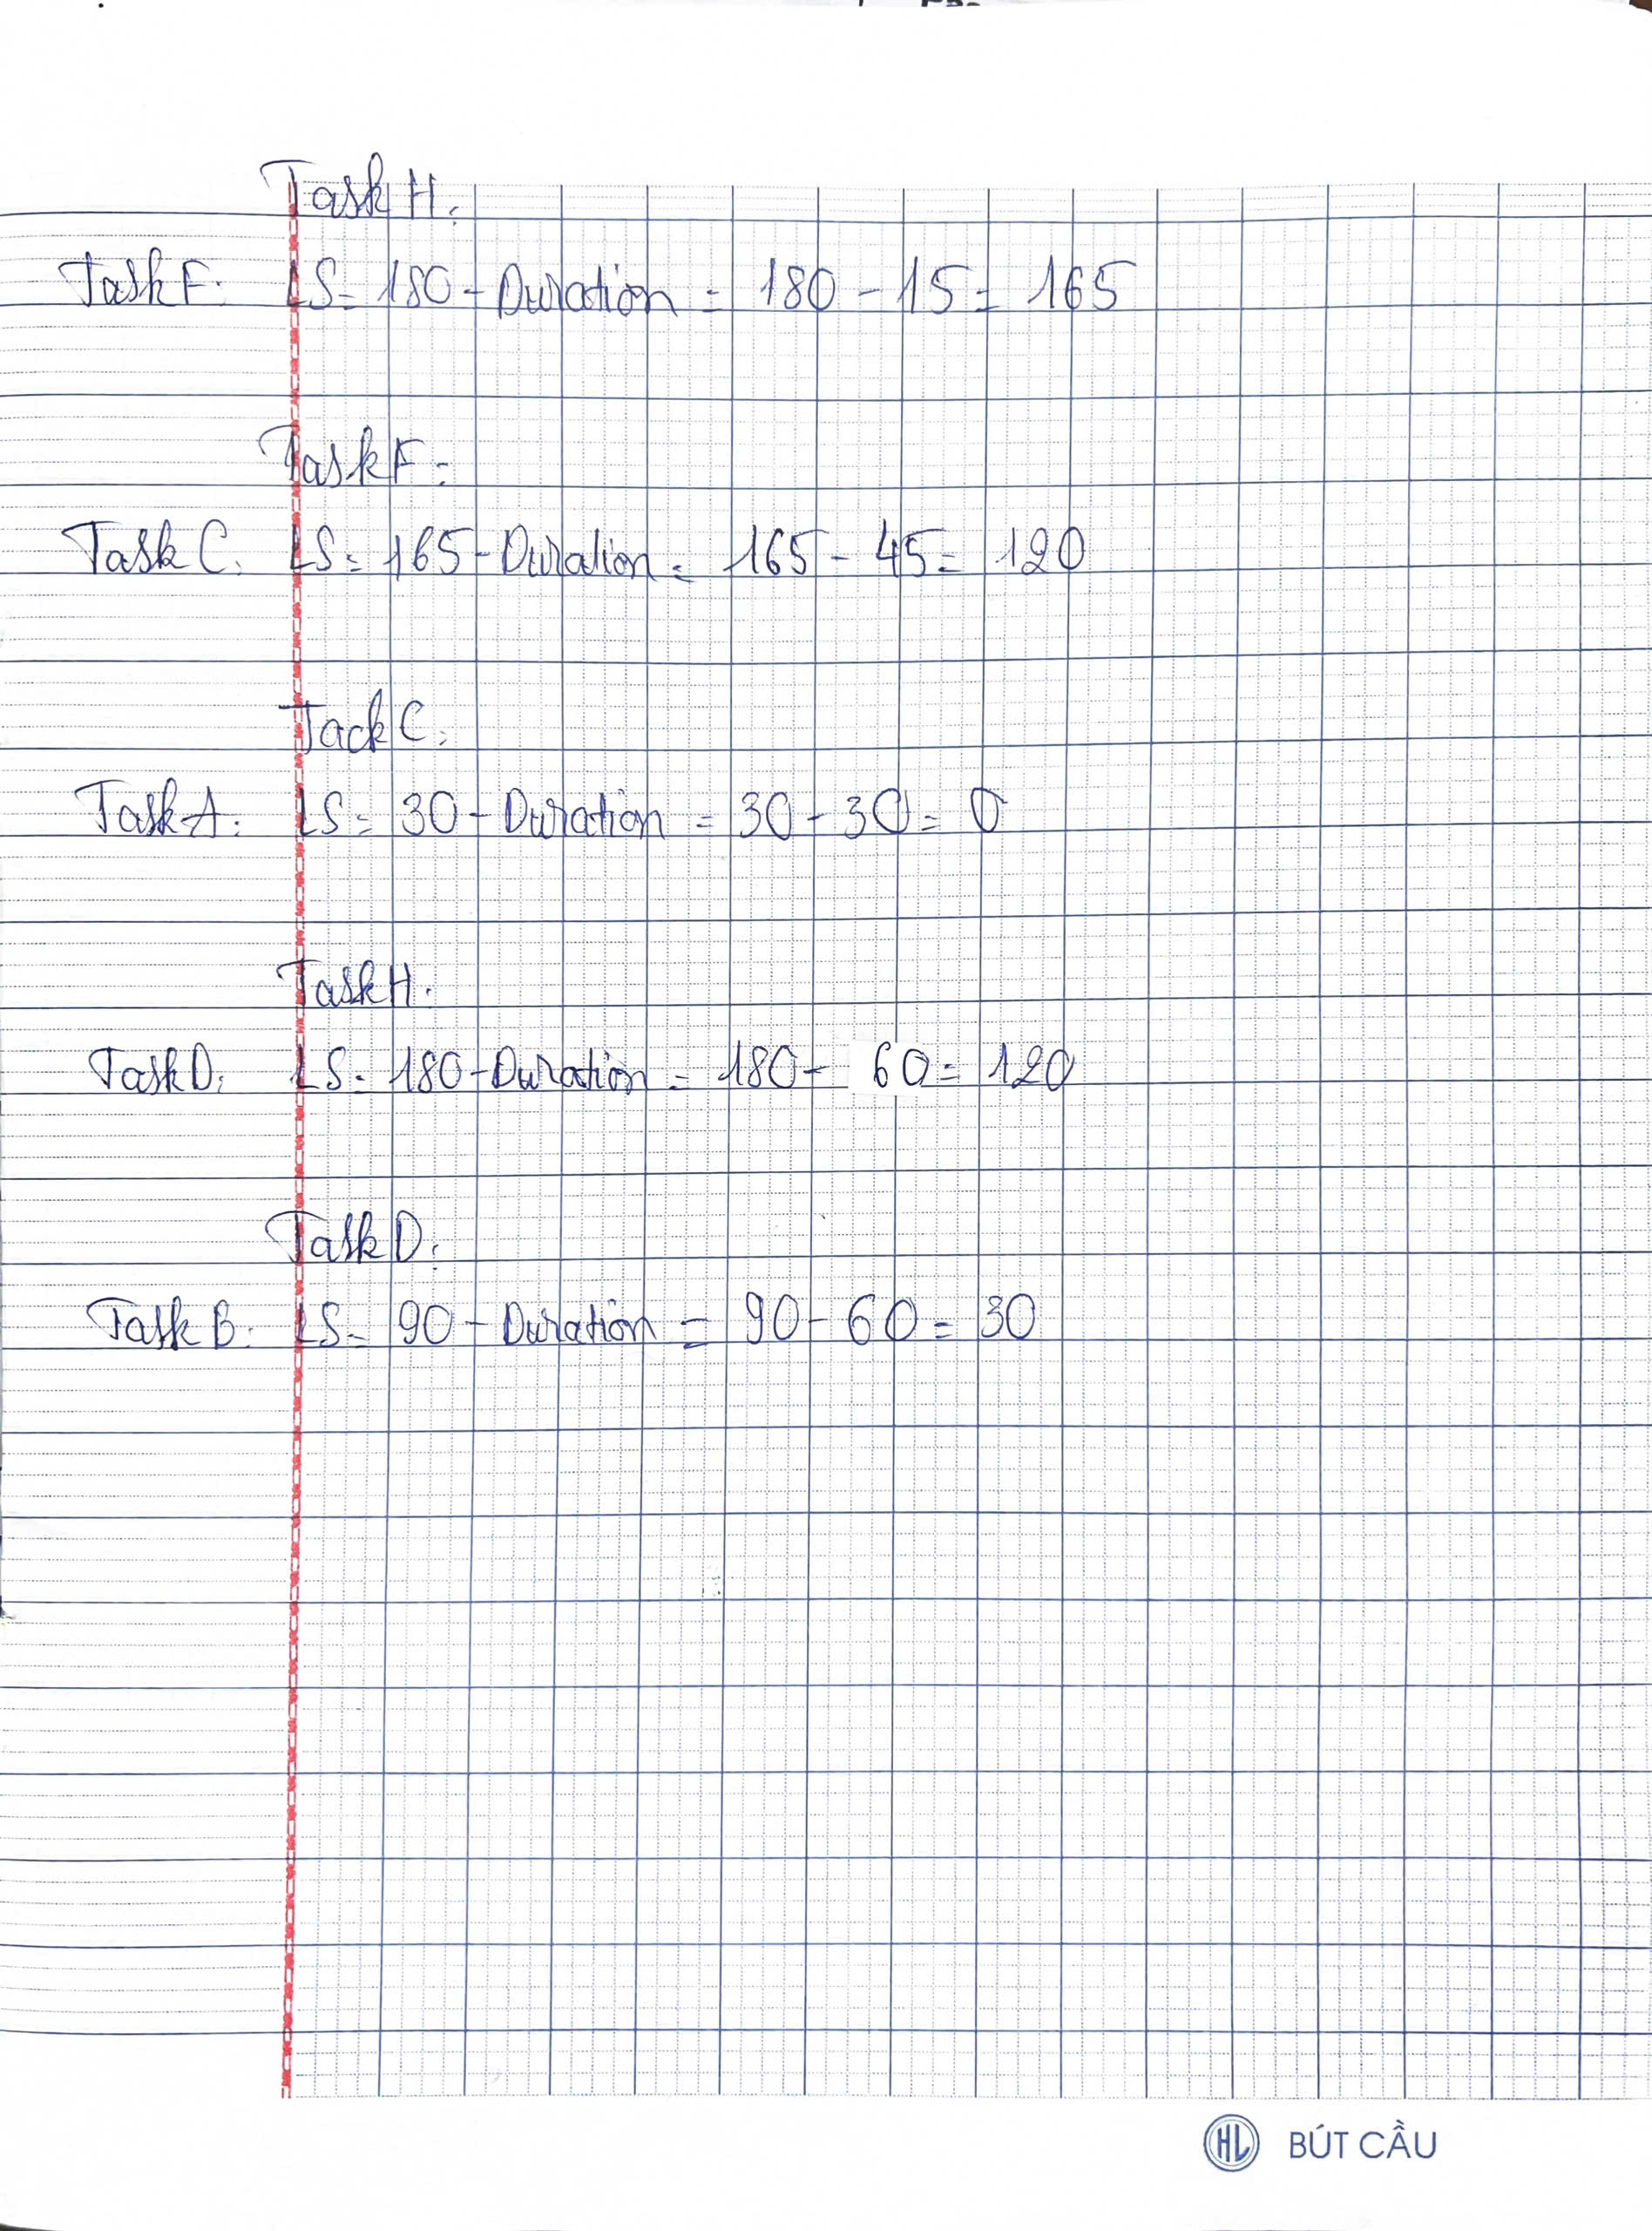 Task H:
Task F: LS = 180 - Duration = 180 - 15 = 165
Task F:
Task C: LS = 165 - Duration = 165 - 45 = 120
Tack C:
Task A: LS = 30 - Duration = 30 - 30 = 0
Task H:
Task D: LS = 180 - Duration = 180 - 60 = 120
Task D:
Task B: LS = 90 - Duration = 90 - 60 = 30
HL BÚT CẦU